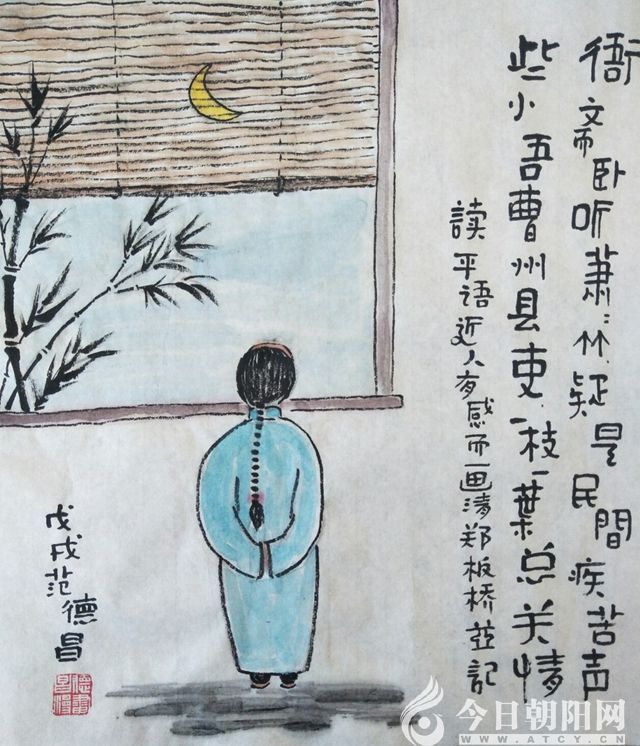 衙斋卧听萧〻竹疑是民間疾苦声
些小吾曹州县吏一枝一葉总关情
读平语近人有感而画清郑板桥並記
戊戌范德昌
今日朝阳网
WWW.ATCY.CN